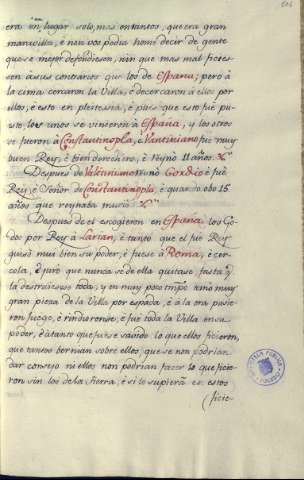 era en lugar solo, mas en tantos, que era gran
maravilla, è nan vos podia home decir de gente
que se mejor defendiesen, nin que mas mal ficies-
sen a sus contrarios que los de España; pero à
la cima cercaron la Villa, è decercaron à ellos por
ellos, è esto en pleitesia, è pues que esto fué pu-
esto, los unos se vinieron à España, y los otros
se fueron à Constantinopla, è Vantiniano fue muy
buen Rey, è bien derechero, è reynó 11 años.
Despues de Valentiniano reynó Gordio è fué
Rey, è Señor de Constantinopla, è quando obo 15
años que reynaba murió
Despues de el escogieron en España los Go-
dos por Rey à Larian, è tanto que el fué Rey
guisó muy bien su poder, è fuese à Roma, è cer-
cola, è juró que nunca se de ella quitase fasta q.
la destruiesse toda, y en muy poco tiempo tomó muy
gran pieza de la Villa por espada, è à la otra pusie-
ron fuego, è rindieronse, è fué toda la Villa en su
poder, è à tanto que fuese sabido lo que ellos ficieron,
que tantos bernian sobre ellos que se non podrian
dar consejo ni ellos non podrian facer lo que ficie-
ron sin los de la tierra, è si lo supieran en estos
ficie-